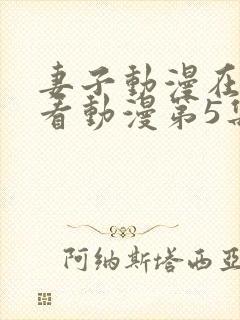 妻子動漫在
看動漫第5集
阿纳斯塔西亚